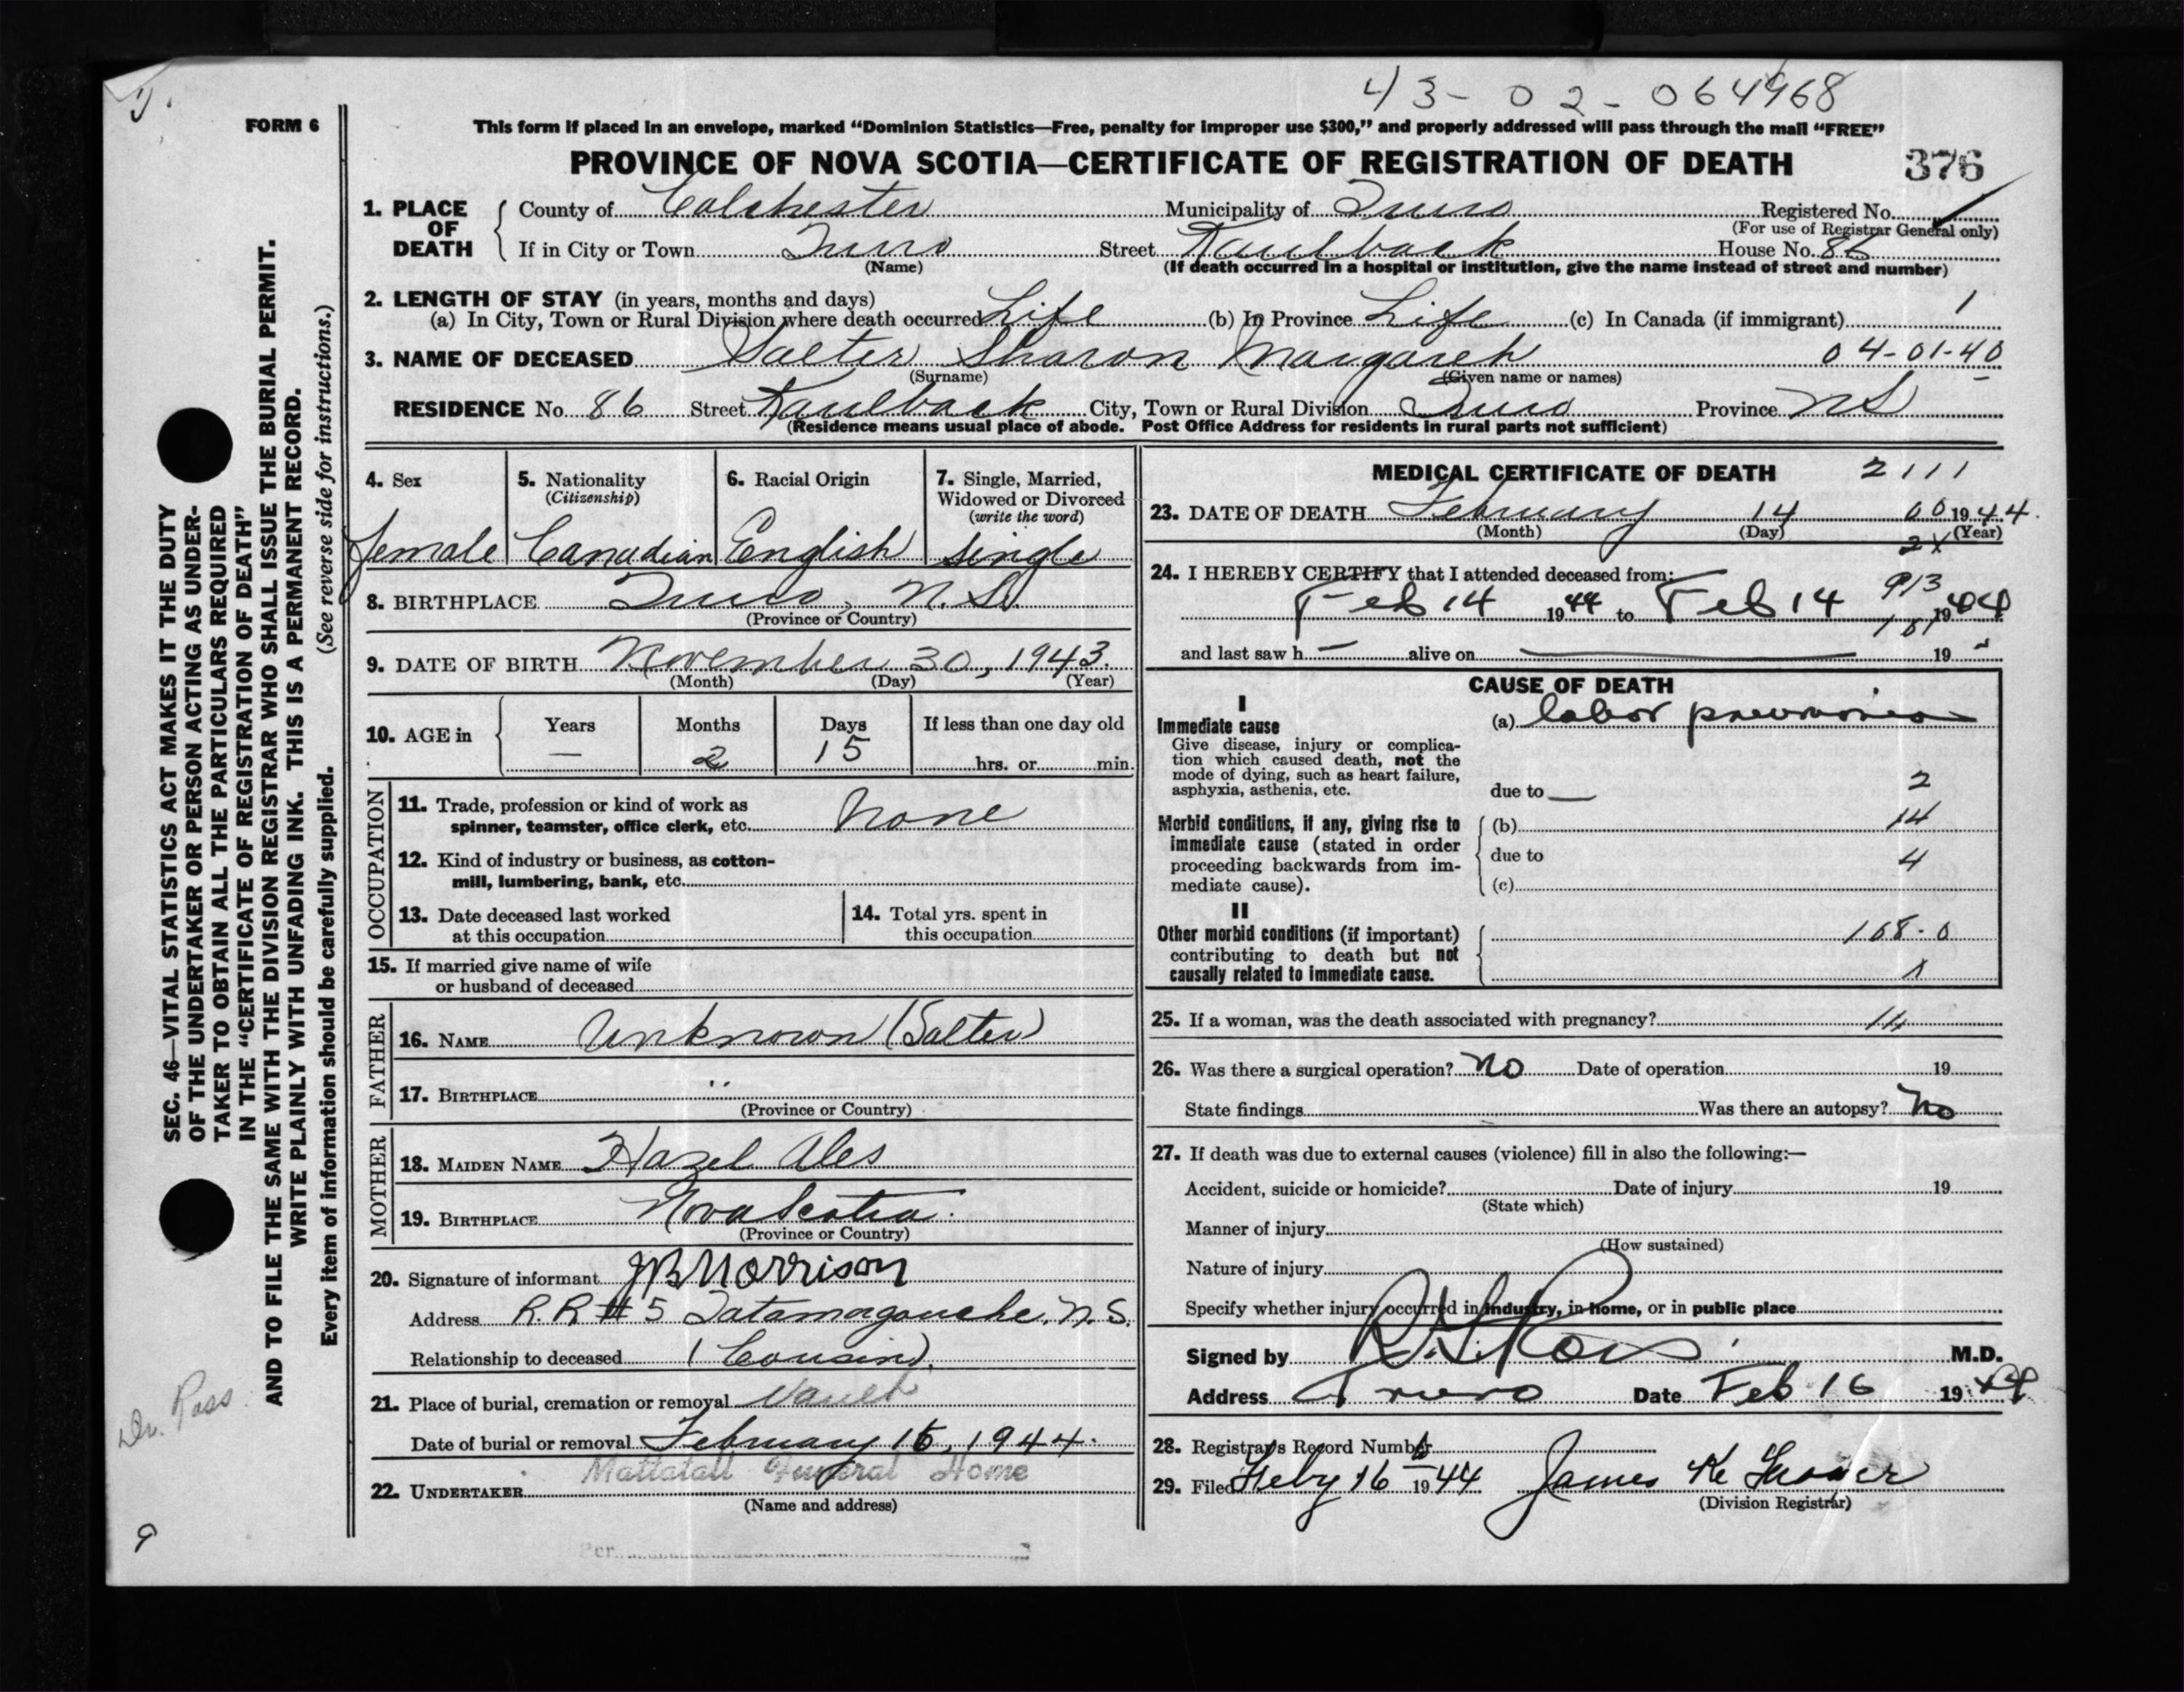 43-02-064968
FORM 6
This form if placed in an envelope, marked “Dominion Statistics—Free, penalty for improper use $300,” and properly addressed will pass through the mail “FREE”
PROVINCE OF NOVA SCOTIA—CERTIFICATE OF REGISTRATION OF DEATH 376
1. PLACE OF DEATH County of Colchester Municipality of Truro Registered No.
(For use of Registrar General only)
If in City or Town Truro Street Kaulback House No. 86
(Name) (If death occurred in a hospital or institution, give the name instead of street and number)
2. LENGTH OF STAY (in years, months and days) 1
(a) In City, Town or Rural Division where death occurred Life (b) In Province Life (c) In Canada (if immigrant)
3. NAME OF DECEASED Salter Sharon Margaret 04-01-40
(Surname) (Given name or names)
RESIDENCE No. 86 Street Kaulback City, Town or Rural Division Truro Province NS
(Residence means usual place of abode. Post Office Address for residents in rural parts not sufficient)
4. Sex 5. Nationality (Citizenship) 6. Racial Origin 7. Single, Married, Widowed or Divorced (write the word)
female Canadian English single
8. BIRTHPLACE Truro, N.S.
(Province or Country)
9. DATE OF BIRTH November 30, 1943.
(Month) (Day) (Year)
10. AGE in Years Months Days If less than one day old
— 2 15 hrs. or min.
OCCUPATION
11. Trade, profession or kind of work as
spinner, teamster, office clerk, etc. None
12. Kind of industry or business, as cotton-
mill, lumbering, bank, etc.
13. Date deceased last worked
at this occupation
14. Total yrs. spent in
this occupation
15. If married give name of wife
or husband of deceased
FATHER
16. NAME Unknown (Salter)
17. BIRTHPLACE "
(Province or Country)
MOTHER
18. MAIDEN NAME Hazel Ales
19. BIRTHPLACE Nova Scotia.
(Province or Country)
20. Signature of informant JB Morrison
Address R.R #5 Tatamagouche. N.S.
Relationship to deceased (Cousin).
21. Place of burial, cremation or removal Vault
Date of burial or removal February 16, 1944.
Mattatall Funeral Home
22. UNDERTAKER
(Name and address)
Per
MEDICAL CERTIFICATE OF DEATH 2111
23. DATE OF DEATH February 14 00 1944.
(Month) (Day) (Year)
24. I HEREBY CERTIFY that I attended deceased from:
913
Feb 14 1944 to Feb 14 1944
and last saw h — alive on 19
CAUSE OF DEATH
I
Immediate cause (a) lobar pneumonia
Give disease, injury or complica-
tion which caused death, not the
mode of dying, such as heart failure,
asphyxia, asthenia, etc. due to — 2
Morbid conditions, if any, giving rise to (b) 14
immediate cause (stated in order due to 4
proceeding backwards from im-
mediate cause). (c)
II
Other morbid conditions (if important) 108-0
contributing to death but not
causally related to immediate cause. 1
25. If a woman, was the death associated with pregnancy?
26. Was there a surgical operation? No Date of operation 19
State findings Was there an autopsy? No
27. If death was due to external causes (violence) fill in also the following:—
Accident, suicide or homicide? Date of injury 19
(State which)
Manner of injury
(How sustained)
Nature of injury
Specify whether injury occurred in industry, in home, or in public place
Signed by Ross M.D.
Address Truro Date Feb 16 1944
28. Registrar's Record Number
29. Filed Feby 16 1944 James K
(Division Registrar)
SEC. 46—VITAL STATISTICS ACT MAKES IT THE DUTY
OF THE UNDERTAKER OR PERSON ACTING AS UNDER-
TAKER TO OBTAIN ALL THE PARTICULARS REQUIRED
IN THE “CERTIFICATE OF REGISTRATION OF DEATH”
AND TO FILE THE SAME WITH THE DIVISION REGISTRAR WHO SHALL ISSUE THE BURIAL PERMIT.
WRITE PLAINLY WITH UNFADING INK. THIS IS A PERMANENT RECORD.
Every item of information should be carefully supplied. (See reverse side for instructions.)
Dr. Ross